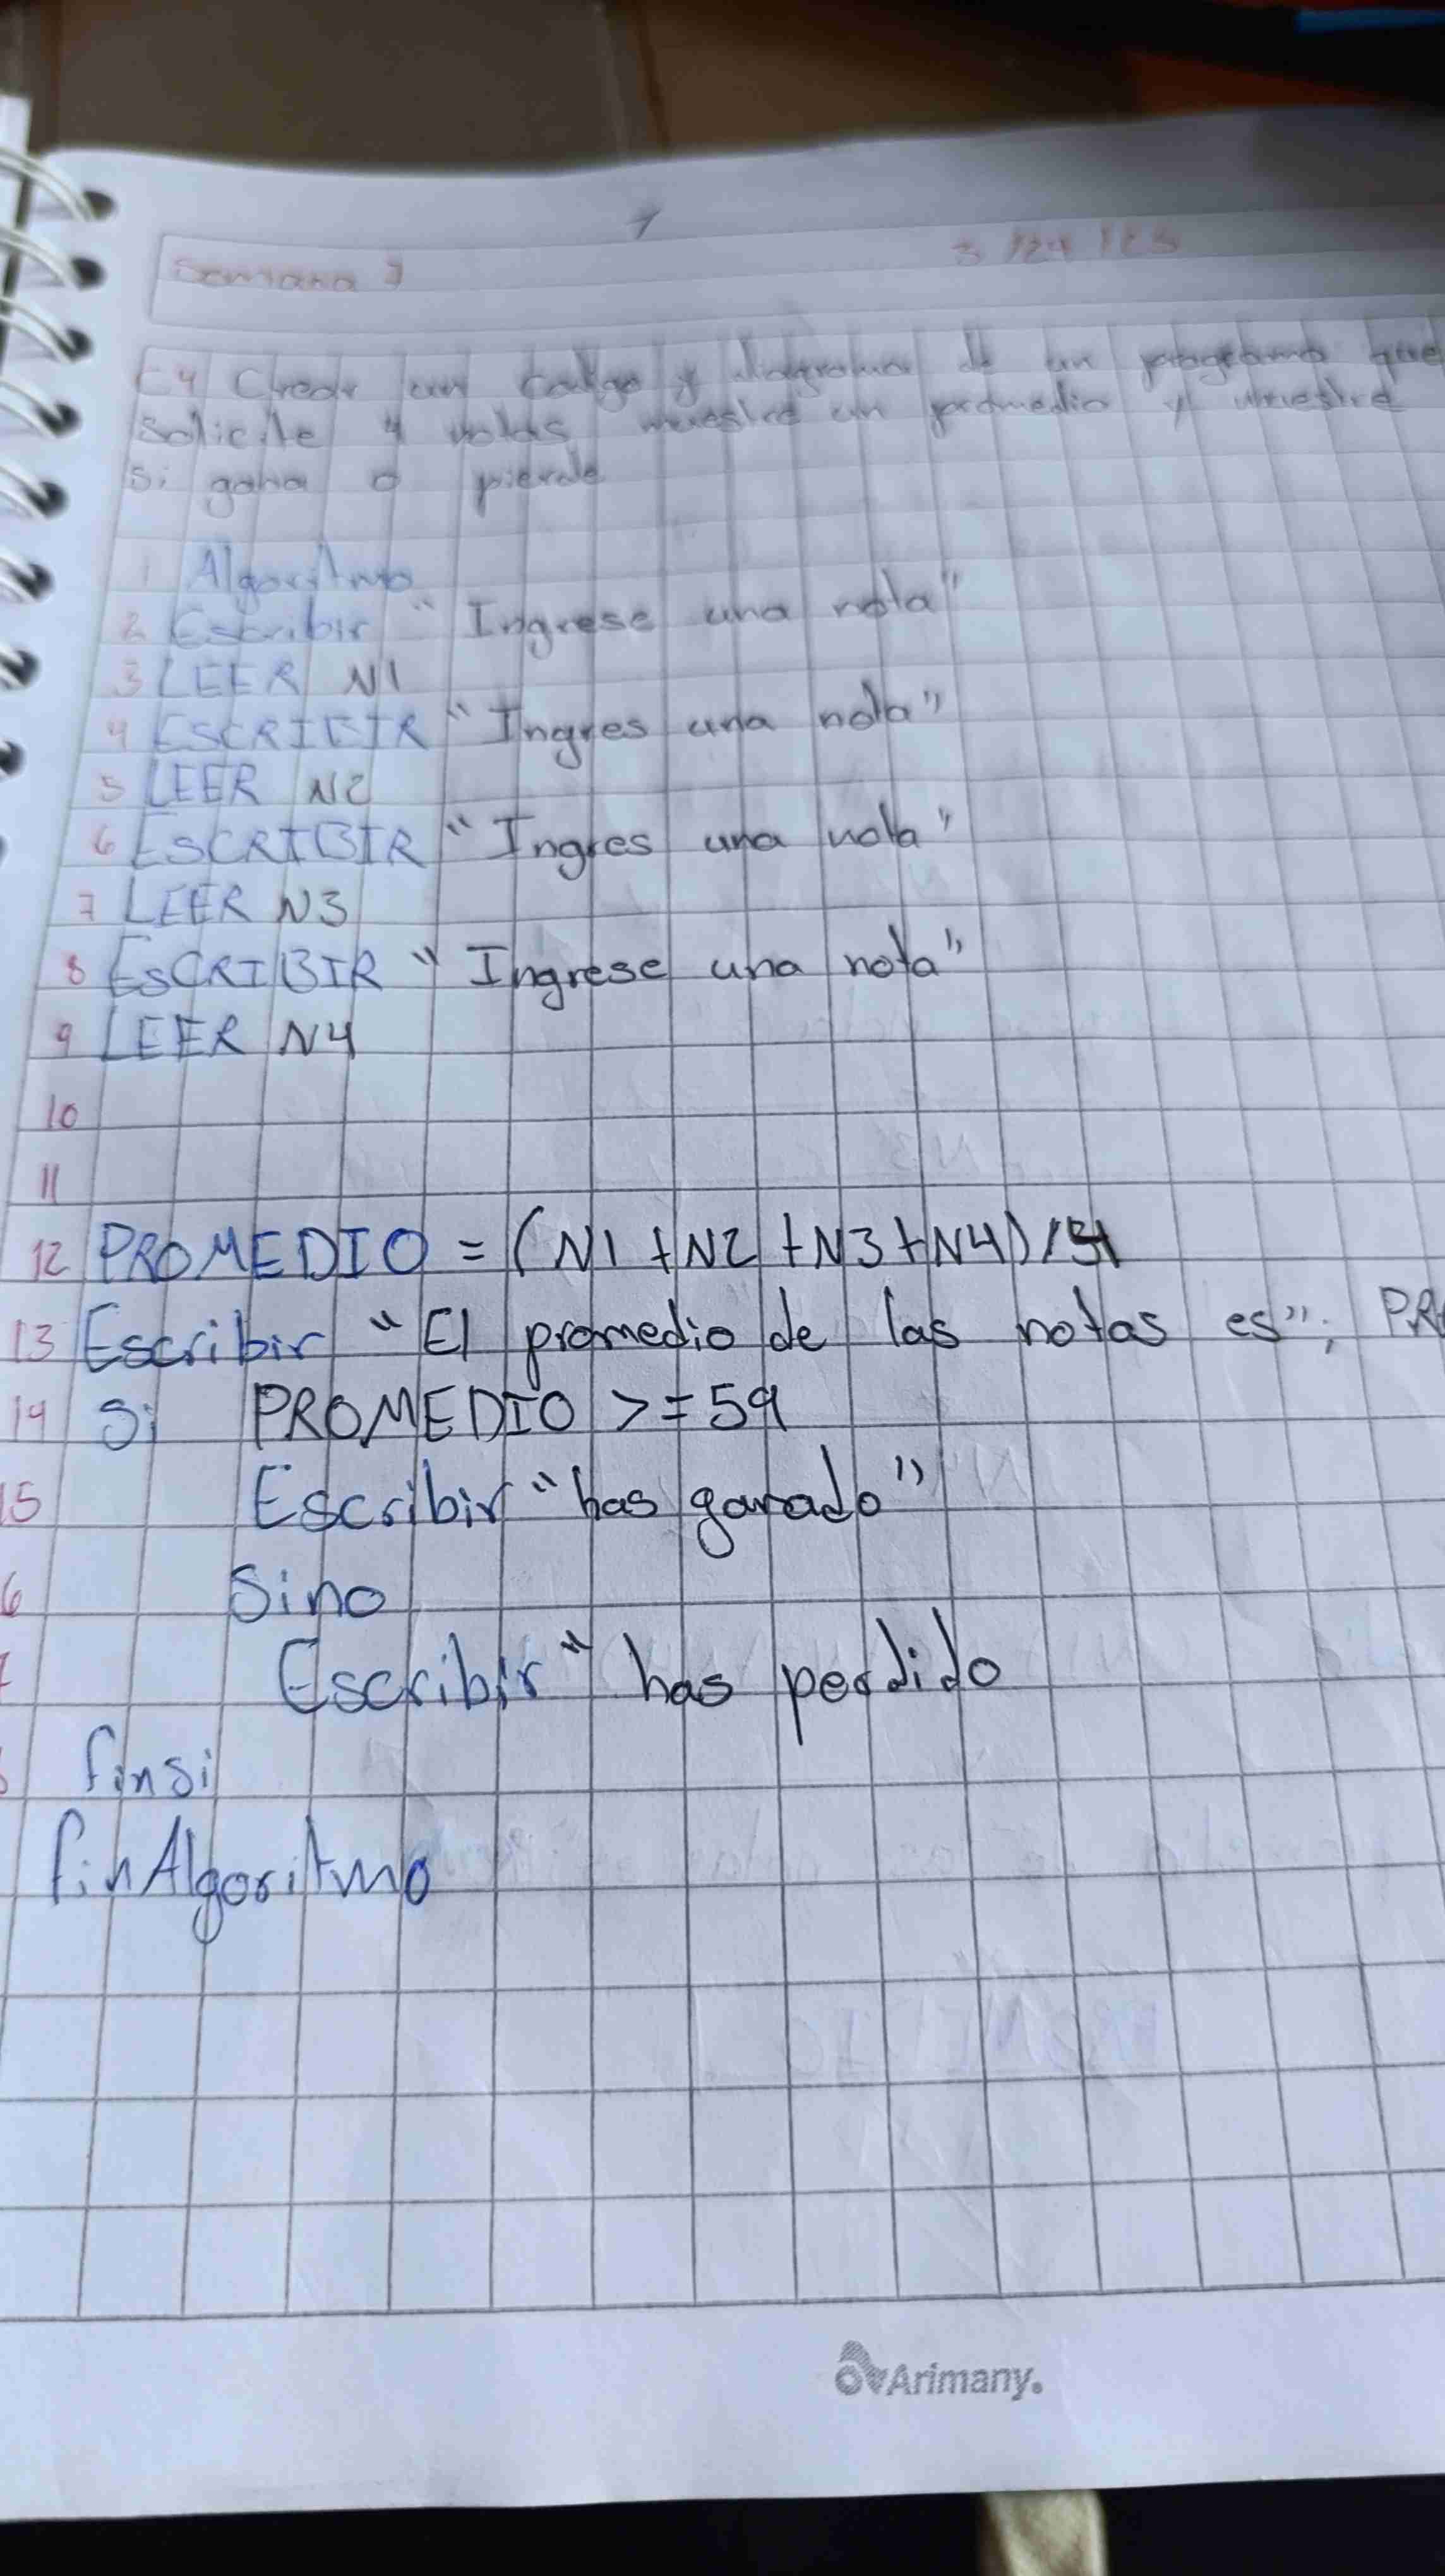 Semana 7
C4 Crear un codigo y diagrama de un programa que
solicite 4 notas muestre un promedio y muestre
si gana o pierde
1 Algoritmo
2 Escribir "Ingrese una nota"
3 LEER N1
4 ESCRIBIR "Ingres una nota"
5 LEER N2
6 ESCRIBIR "Ingres una nota"
7 LEER N3
8 ESCRIBIR "Ingrese una nota"
9 LEER N4
10
11
12 PROMEDIO = (N1 + N2 + N3 + N4) /
13 Escribir "El promedio de las notas es";
14 Si PROMEDIO >= 59
5 Escribir "has ganado"
6 Sino
Escribir "has perdido
finsi
finAlgoritmo
Arimany.